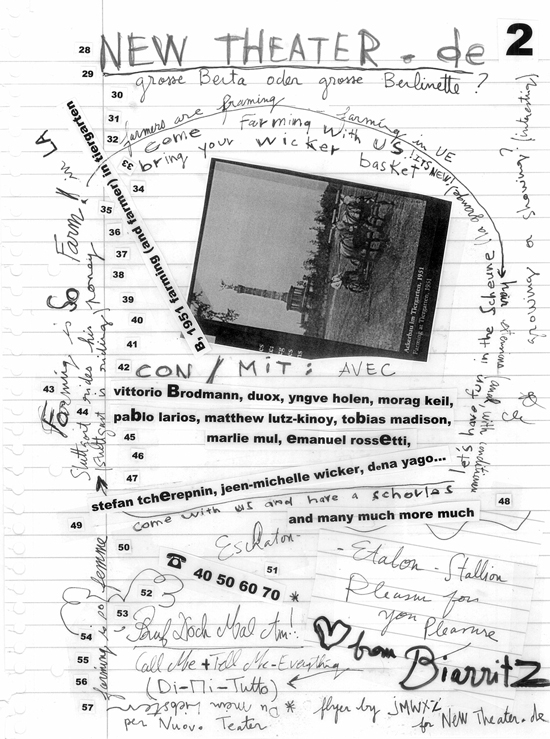 28
NEW THEATER.de
2
29
grosse Berta oder grosse Berlinette?
30
31
farmers are framing
farming in UE
32
come Farming with us (ITS NEW!)
33
bring your wicker basket
(la grande)
growing or showing? (interesting)
B, 1951 farming (and farmer) in tiergarten
34
35
36
37
38
39
40
41
Ackerbau im Tiergarten, 1951
Farming in Tiergarten, 1951
So Farm.. LA
Farming is
Stuttgart rides his poney
let's have fun in the Scheune
42
CON / MIT: AVEC
43
vittorio Brodmann, duox, yngve holen, morag keil,
44
pablo larios, matthew lutz-kinoy, tobias madison,
45
marlie mul, emanuel rossetti,
46
47
stefan tcherepnin, jeen-michelle wicker, dena yago...
come with us and have a schorles
48
49
and many much more much
50
Eskaton
51
☎ 40 50 60 70 *
-Etalon-Stallion
Pleasure for
you Pleasure
52
53
farming is so femme
54
Ruf Doch Mal An!..
55
Call Me + Tell Me-Everything
56
(Di-Mi-Tutto)
♡ from Biarritz
57
Du mein Liebster
per Nuovo Teater
* flyer by jMWXZ
for New Theater.de